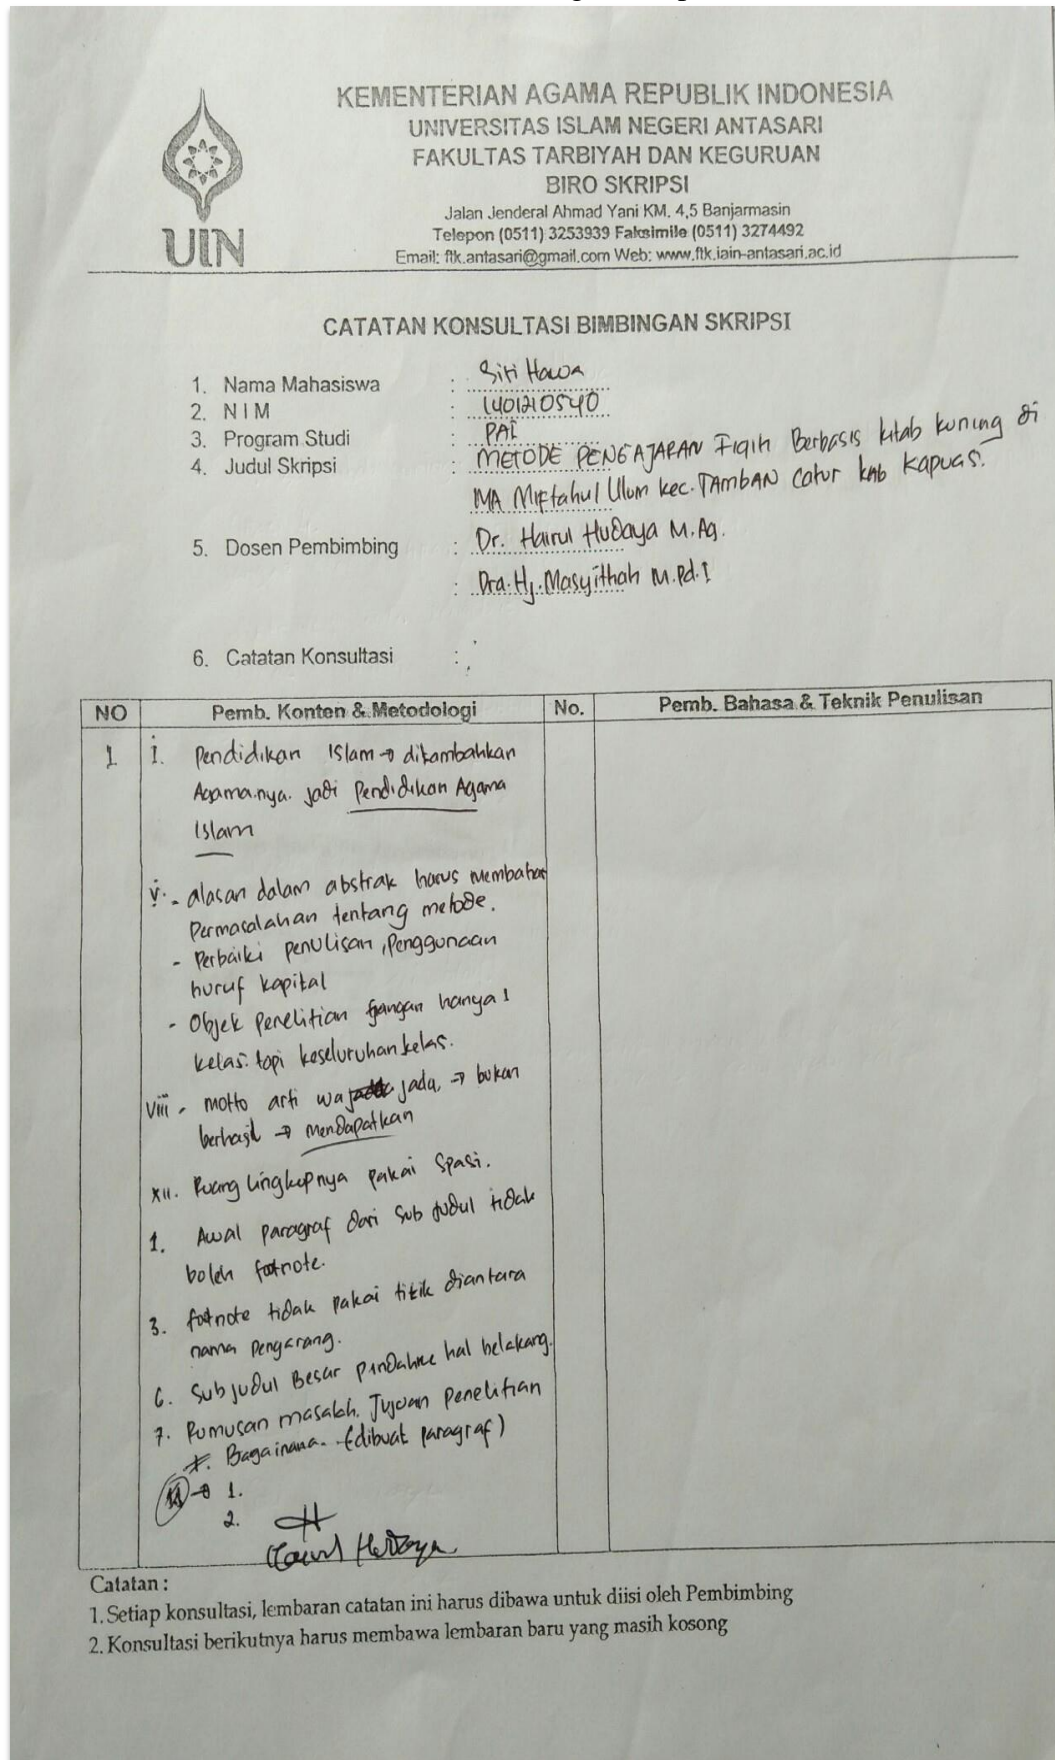 KEMENTERIAN AGAMA REPUBLIK INDONESIA
UNIVERSITAS ISLAM NEGERI ANTASARI
FAKULTAS TARBIYAH DAN KEGURUAN
BIRO SKRIPSI
Jalan Jenderal Ahmad Yani KM. 4,5 Banjarmasin
Telepon (0511) 3253939 Faksimile (0511) 3274492
Email: ftk.antasari@gmail.com Web: www.ftk.iain-antasari.ac.id
UIN
CATATAN KONSULTASI BIMBINGAN SKRIPSI
1. Nama Mahasiswa : Siti Hawa
2. N I M : 1401210540
3. Program Studi : PAI
4. Judul Skripsi : METODE PENGAJARAN Fiqih Berbasis kitab kuning di
MA Miftahul Ulum kec. TAMBAN catur kab Kapuas.
5. Dosen Pembimbing : Dr. Hairul Hudaya M.Ag.
: Dra. Hj. Masyithah M.Pd.I
6. Catatan Konsultasi :
NO Pemb. Konten & Metodologi No. Pemb. Bahasa & Teknik Penulisan
1 i. Pendidikan Islam → ditambahkan
Agama.nya. jadi Pendidikan Agama
Islam
v. - alasan dalam abstrak harus membahas
Permasalahan tentang metode.
- Perbaiki penulisan, Penggunaan
huruf kapital
- Objek penelitian jangan hanya 1
kelas. tapi keseluruhan kelas.
viii - motto arti wajada → bukan
berhasil → mendapatkan
xii. Ruang lingkupnya pakai spasi.
1. Awal paragraf dari sub judul tidak
boleh footnote.
3. footnote tidak pakai titik diantara
nama pengarang.
6. Sub judul Besar pindah ke hal belakang.
7. Rumusan masalah. Tujuan penelitian
Bagaimana. (dibuat paragraf)
→ 1.
2.
Hairul Hudaya
Catatan :
1. Setiap konsultasi, lembaran catatan ini harus dibawa untuk diisi oleh Pembimbing
2. Konsultasi berikutnya harus membawa lembaran baru yang masih kosong